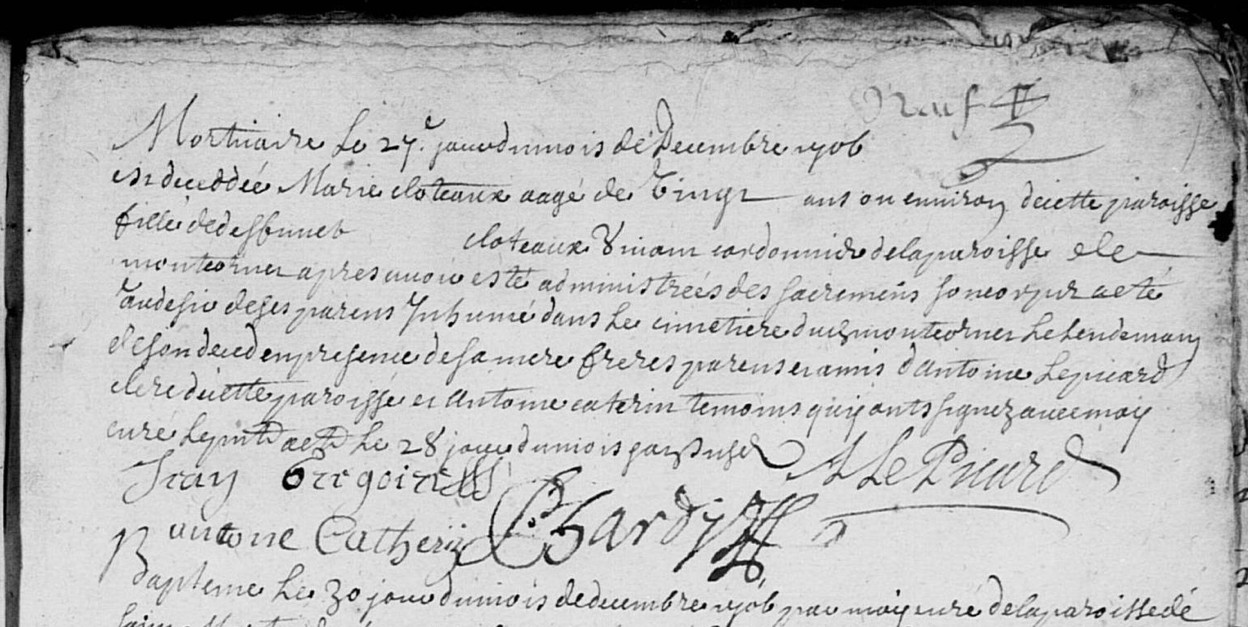 Neuf
Mortuaire Le 27e jour du mois de Decembre 1706
est deceddée Marie cloteaux aagé de Vingt ans ou environ de cette paroisse
fille de deffunct cloteaux Vivant cordonnier de la paroisse de
montcornet apres avoir esté administrées des sacremens son corps a eté
au desir de ses parens Inhumé dans Le cimetiere dud montcornet Le lendemain
de son deced en presence de sa mere freres parens et amis d'antoine Lepicard
clerc de cette paroisse et Antoine caterin temoins qui ont signez avec moy
curé Le 28 jour du mois A Le Picard
Jean Gregoire
antoine Catherin Hardy
Bapteme Le 30 jour du mois de decembre 1706 par moy curé de la paroisse de